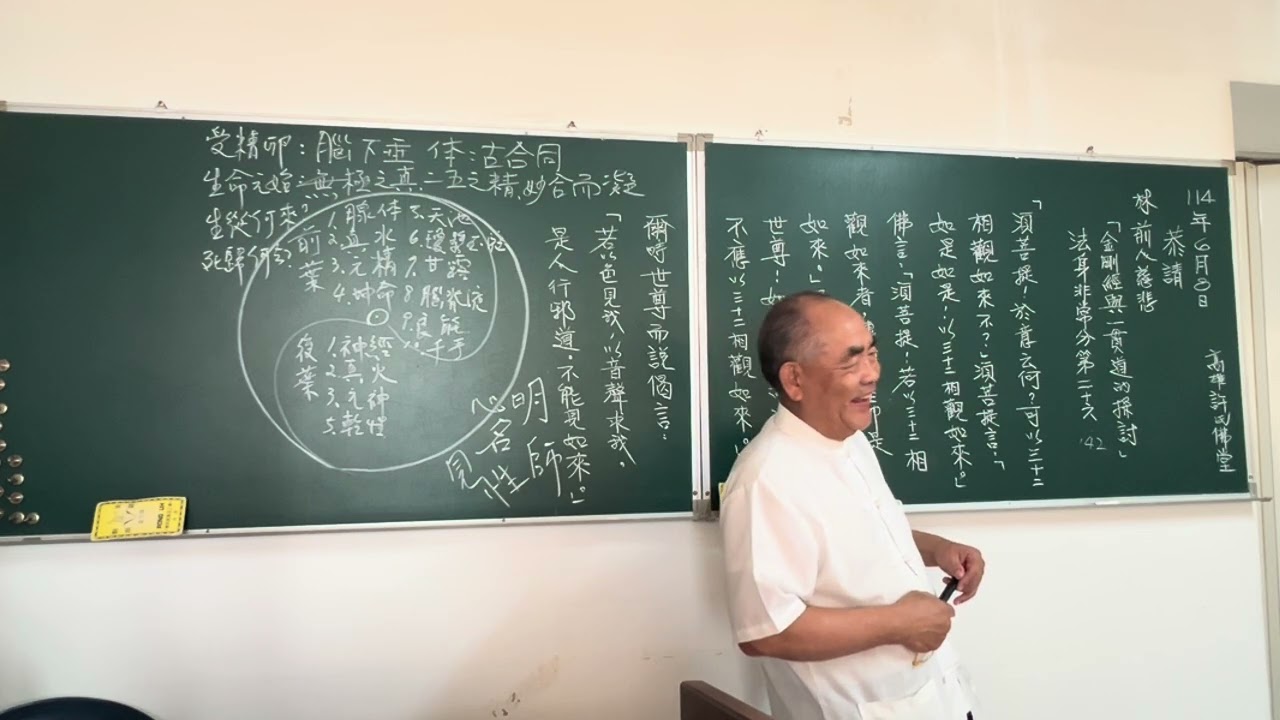 114年6月8日 高雄許氏佛堂
恭請
林前人慈悲
「金剛經與一貫道的探討」
法身非常分第二十六 '42
「須菩提!於意云何?可以三十二
相觀如來不?」須菩提言:「
如是如是!以三十二相觀如來。」
佛言:「須菩提!若以三十二相
觀如來者
即是
如來。」
世尊!如
不應以三十二相觀如來。」
爾時世尊而說偈言:
「若以色見我,以音聲求我,
是人行邪道,不能見如來。」
受精卵:腦下垂体活合同
生命元始:無極之真二五之精,妙合而凝
生從何來?
死歸何처
前葉
1.腺体
2.真水
3.元精
4.坤命
5.天池
6.瓊漿
7.甘露
8.腦脊液
9.良能
後葉
1.神經
2.真火
3.元神
5.乾性
明師
心名性
見